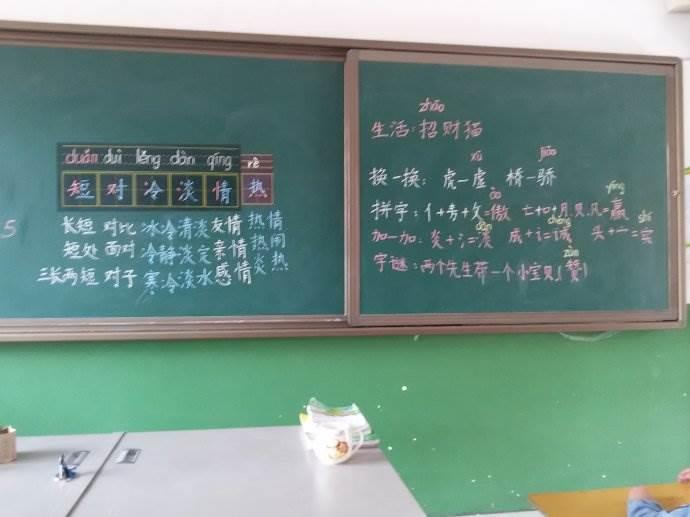 duǎn duì lěng dàn qíng rè
短 对 冷 淡 情 热
长短 对比 冰冷 清淡 友情 热情
短处 面对 冷静 淡定 亲情 热闹
三长两短 对于 寒冷 淡水 感情 炎热
5
zhāo
生活：招财猫
xū jiāo
换一换：虎－虚 桥－骄
ào yíng
拼字：亻+青+攵=傲 亡+口+月.贝.凡=赢
dàn chéng shí
加一加：炎+氵=淡 成+讠=诚 头+宀=实
zàn
字谜：两个先生带一个小宝贝（赞）